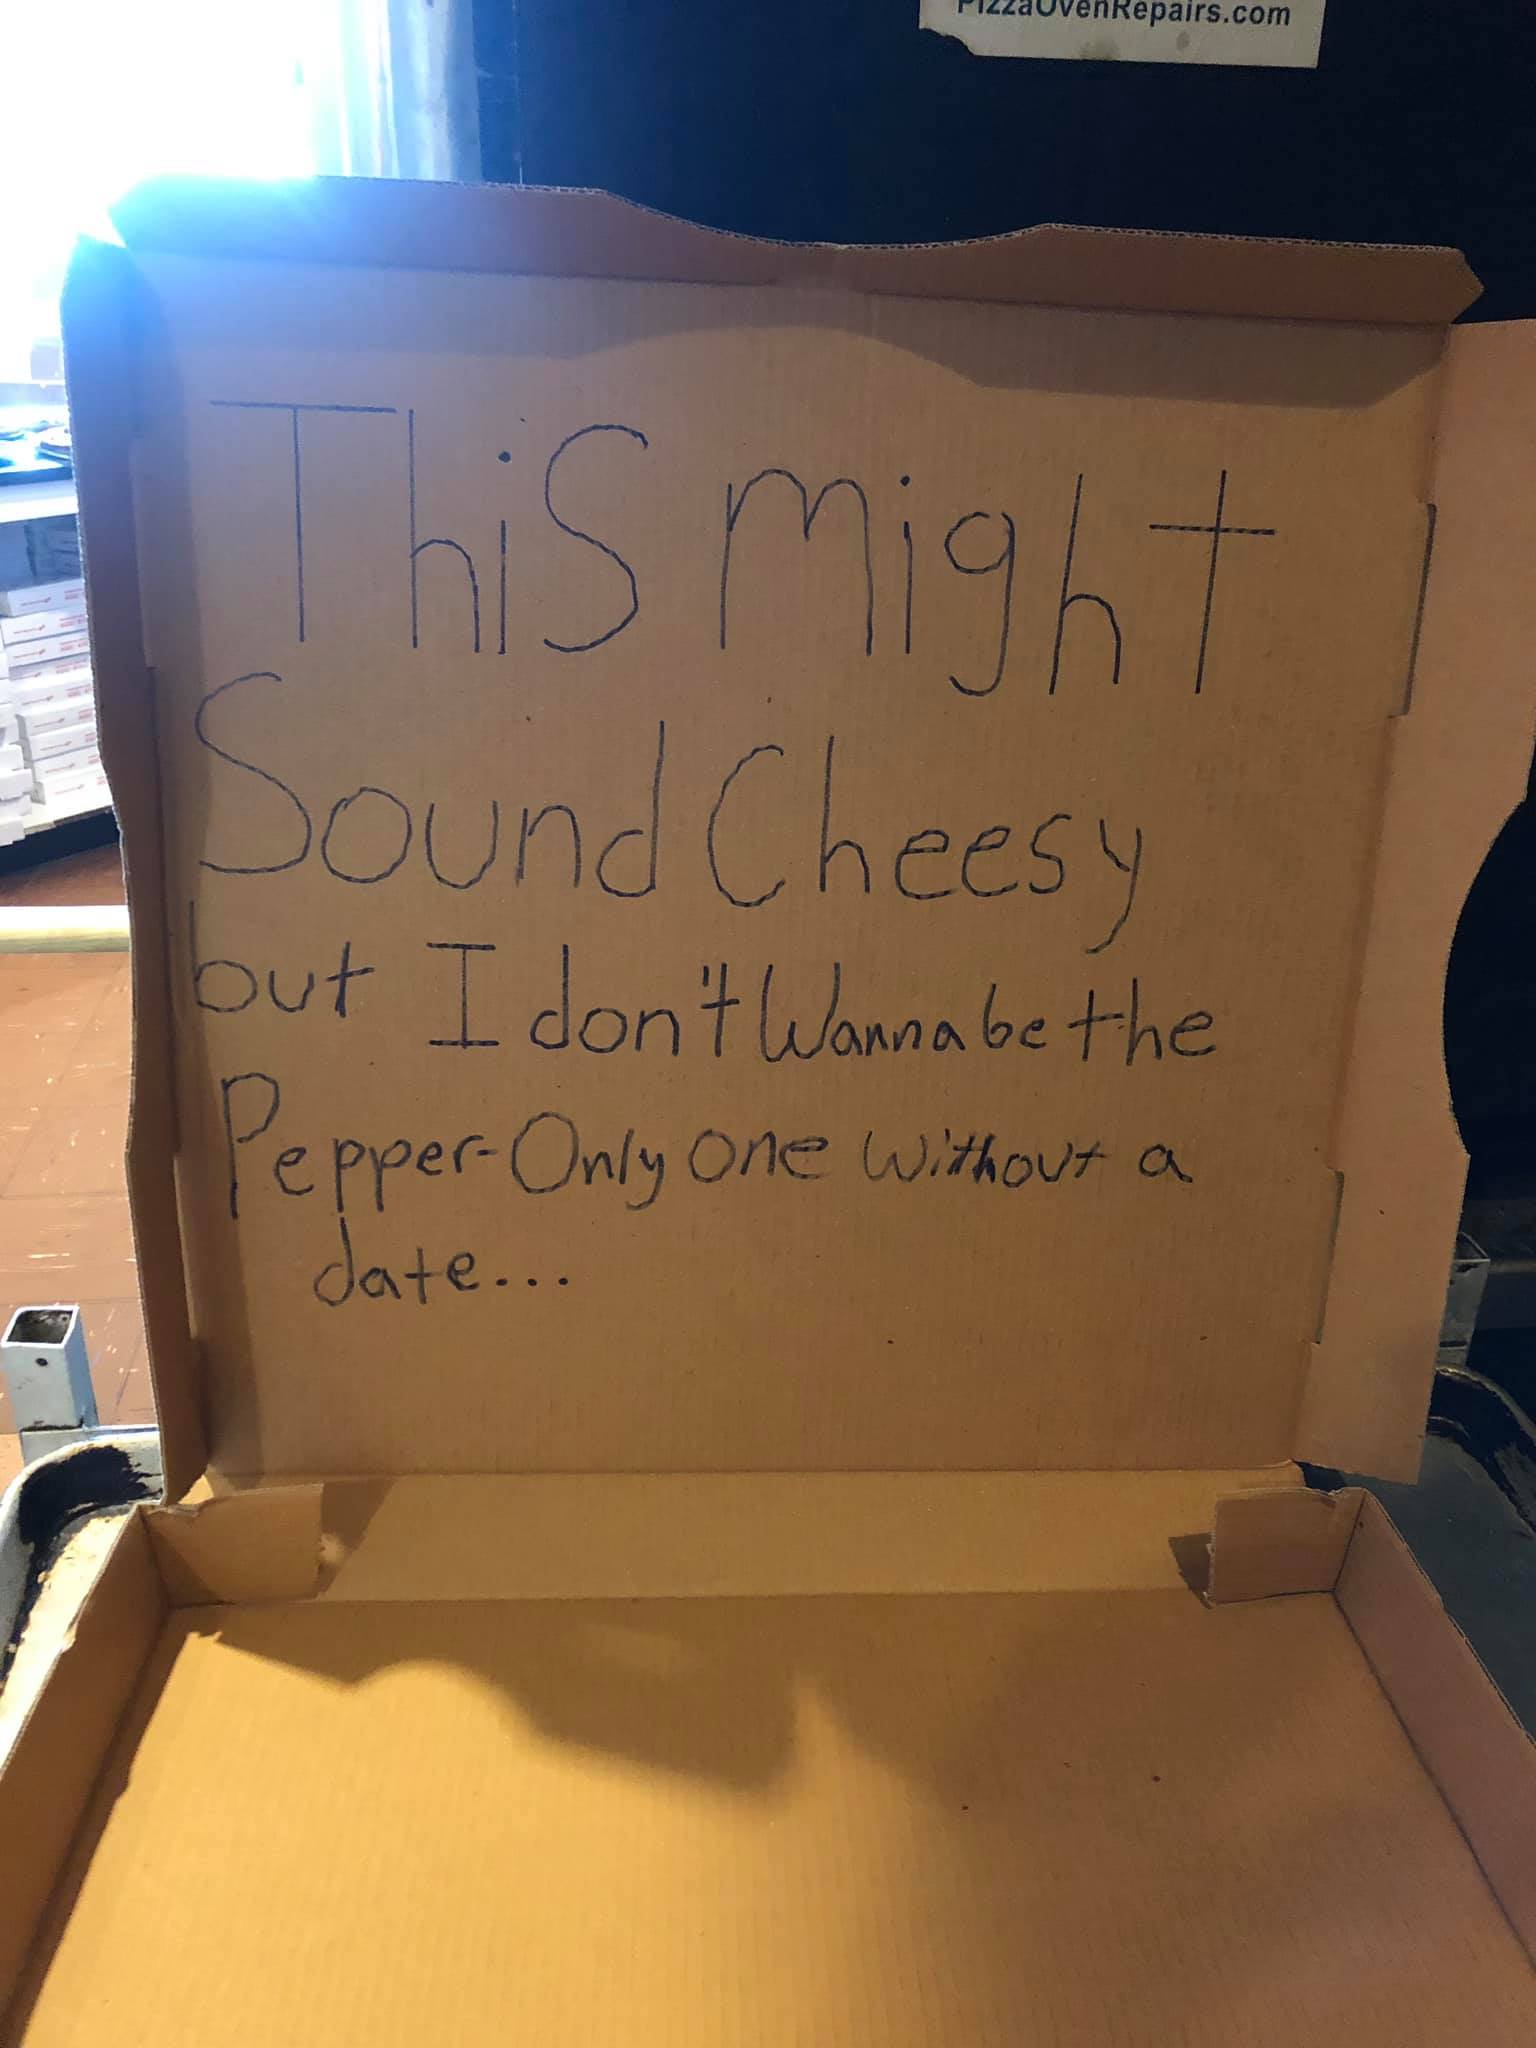 PizzaOvenRepairs.com
This might
Sound Cheesy
but I don't Wanna be the
Pepper-Only one without a
date...